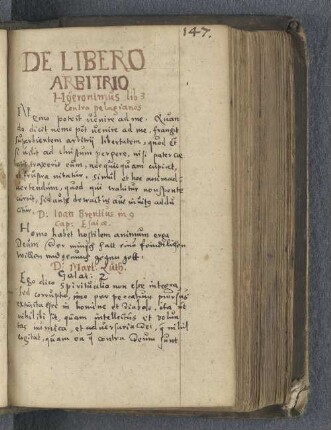 147.
DE LIBERO
ARBITRIO
Hieronimus lib 3
Contra pelagianos
Nemo potest venire ad me. Quan
do dicit nemo pot venire ad me, frangit
superbientem arbitrij libertatem, quod et
si velit ad christum pergere, nisi pater cae
lestis traxerit eum, nequicquam cupiat,
et frustra nitatur, simul et hoc animad
vertendum, quod qui trahitur non sponte
currit, sed aut retractans aut invitus addu
citur.
D. Ioan Brentius in 9
cap: Esaiae.
Homo habet hostilem animum erga
Deum
wollen
D. Mart. Luth.
Galat: 2
Ego dico spiritualia non esse integra,
sed corrupta, imo per peccatum prorsus
extincta esse in homine et diabolo, ita ut
nihil ibi sit, quam intellectus et volun
tas inimica, et adversaria dei, quae nihil
cogitat, quam ea quae contra Deum sunt